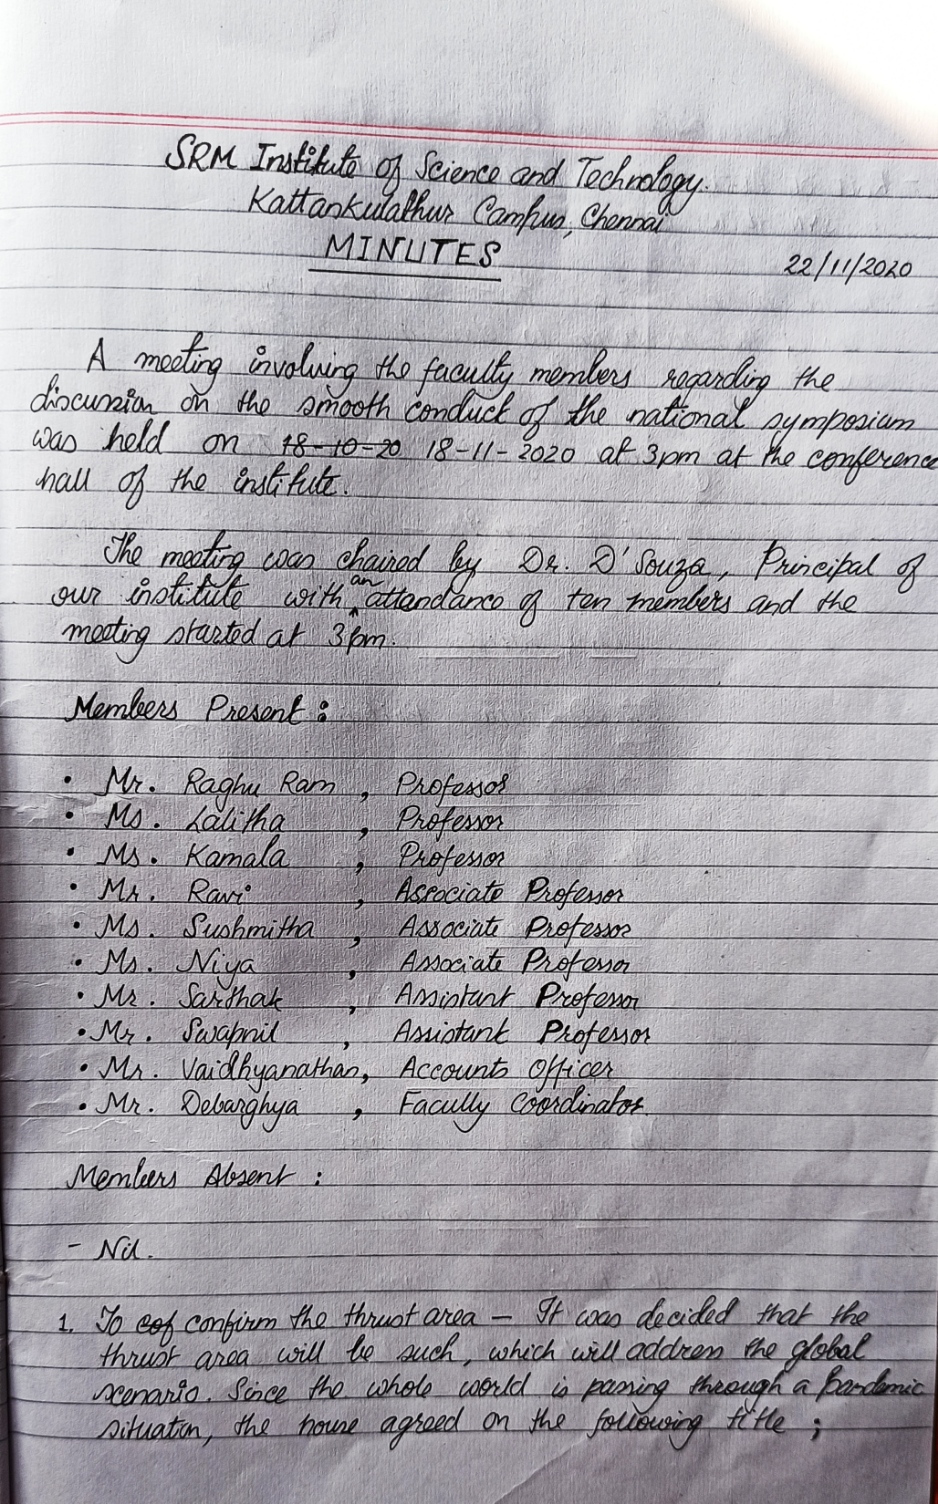 SRM Institute of Science and Technology.
Kattankulathur Campus, Chennai
MINUTES
22/11/2020
A meeting involving the faculty members regarding the
discussion on the smooth conduct of the national symposium
was held on 18-10-20 18-11-2020 at 3pm at the conference
hall of the institute.
The meeting was chaired by Dr. D'Souza, Principal of
our institute with an attendance of ten members and the
meeting started at 3pm.
Members Present :
• Mr. Raghu Ram , Professor
• Ms. Lalitha , Professor
• Ms. Kamala , Professor
• Mr. Ravi , Associate Professor
• Ms. Sushmitha , Associate Professor
• Ms. Niya , Associate Professor
• Mr. Sarthak , Assistant Professor
• Mr. Swapnil , Assistant Professor
• Mr. Vaidhyanathan, Accounts Officer
• Mr. Debarghya , Faculty Coordinator.
Members Absent :
- Nil.
1. To cof confirm the thrust area - It was decided that the
thrust area will be such, which will address the global
scenario. Since the whole world is passing through a Pandemic
situation, the house agreed on the following title ;